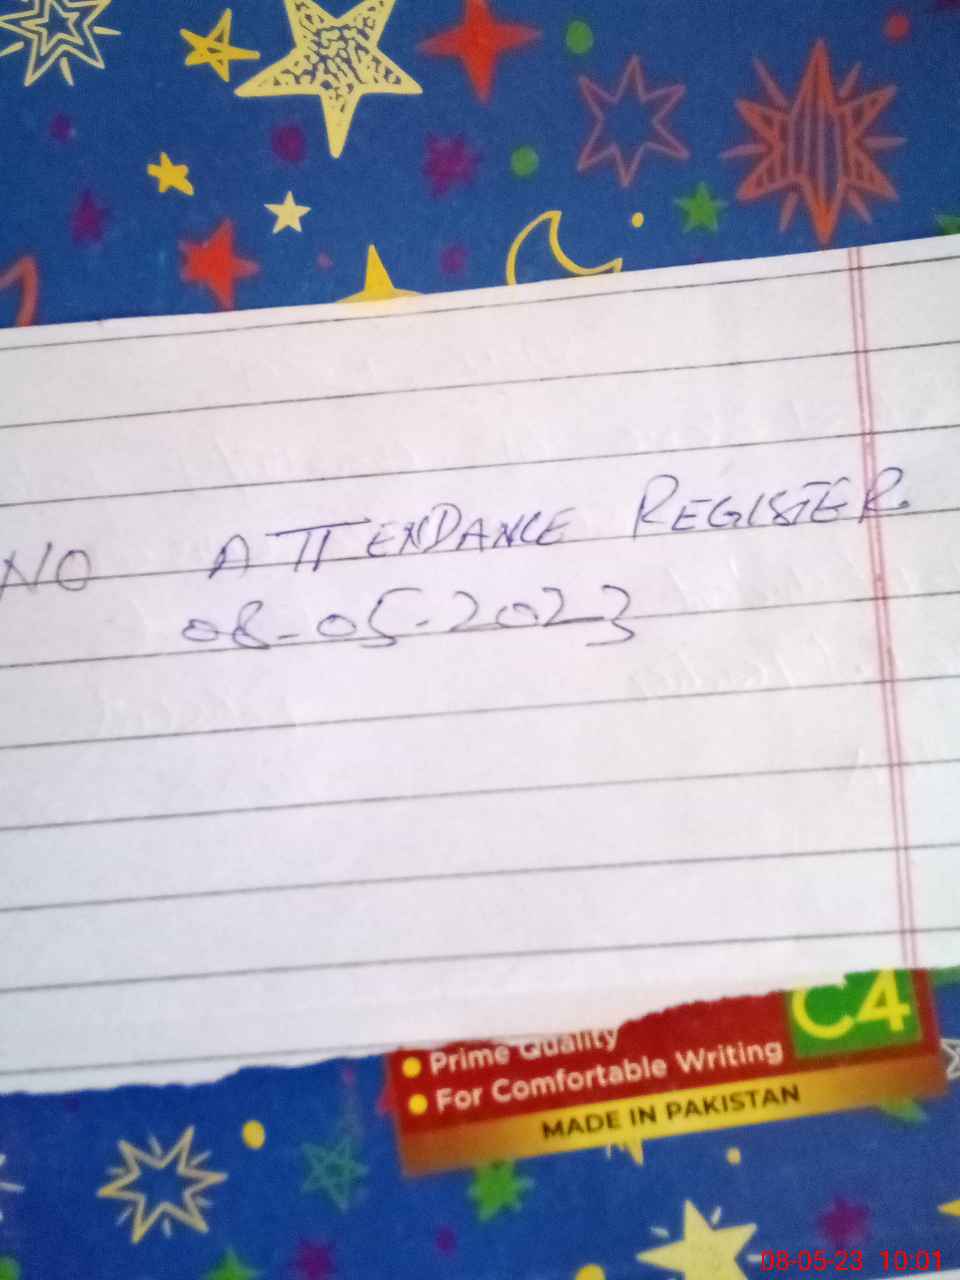 NO ATTENDANCE REGISTER.
08-05-2023
C4
Prime Quality
For Comfortable Writing
MADE IN PAKISTAN
08-05-23 10:01